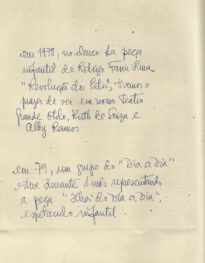 em 1978, no elenco da peça
infantil de Rodrigo Faria Lima
"Revolução dos Patos", tivemos o
prazer de ver em nosso Teatro
grande otelo, Ruth de Souza e
Alby Ramos
em 79, um grupo do "Dia a Dia"
esteve durante 1 mês representando
a peça "Ilhas do Dia a Dia",
espetáculo infantil